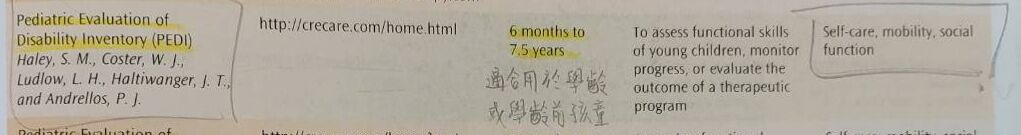 Pediatric Evaluation of
Disability Inventory (PEDI)
Haley, S. M., Coster, W. J.,
Ludlow, L. H., Haltiwanger, J. T.,
and Andrellos, P. J.
http://crecare.com/home.html
6 months to
7.5 years
適合用於學齡
或學齡前孩童
To assess functional skills
of young children, monitor
progress, or evaluate the
outcome of a therapeutic
program
Self-care, mobility, social
function
Pediatric Evaluation of